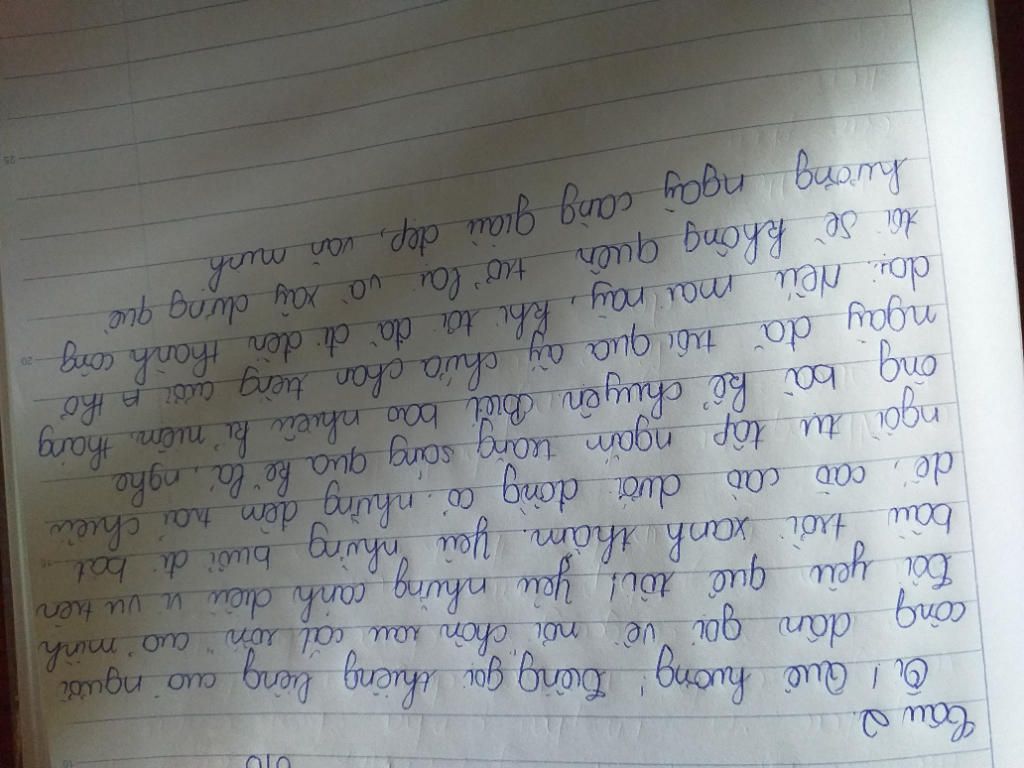 Câu 2.
Ôi! Quê hương! tiếng gọi thiêng liêng của người
công dân gọi về nơi chôn rau cắt rốn của mình
Tôi yêu quê tôi! yêu những cánh diều vi vu trên
bầu trời xanh thẳm. yêu những buổi đi bắt
dế, cào cào dưới đồng cỏ. những đêm trải chiếu
ngồi tụ tập ngắm trăng sáng qua kẽ lá, nghe
ông bà kể chuyện. Biết bao nhiêu kỉ niệm tháng
ngày đã trôi qua ấy chứa chan tiếng cười thơ
dại. Nếu mai này, khi tôi đã đi đến thành công
tôi sẽ không quên trở lại và xây dựng quê
hương ngày càng giàu đẹp, văn minh
20
25